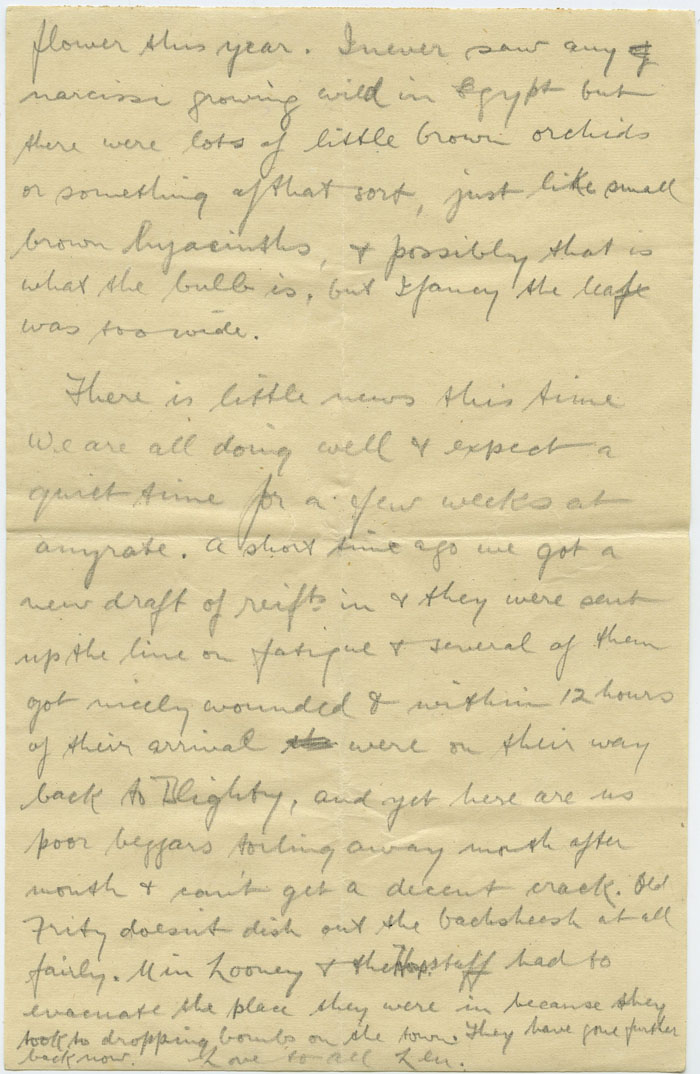 flower this year. I never saw any of
narcissi growing wild in Egypt but
there were lots of little brown orchids
or something of that sort, just like small
brown hyacinths, & possibly that is
what the bulb is, but I fancy the leaf
was too wide.
There is little news this time
We are all doing well & expect a
quiet time for a few weeks at
anyrate. A short time ago we got a
new draft of reifts in & they were sent
up the line on fatigue & several of them
got nicely wounded & within 12 hours
of their arrival were on their way
back to Blighty, and yet here are us
poor beggars toiling away month after
month & can't get a decent crack. Old
Fritz doesn't dish out the backsheesh at all
fairly. Min Looney & the Hosp. staff had to
evacuate the place they were in because they
took to dropping bombs on the town. They have gone further
back now. Love to all Len.